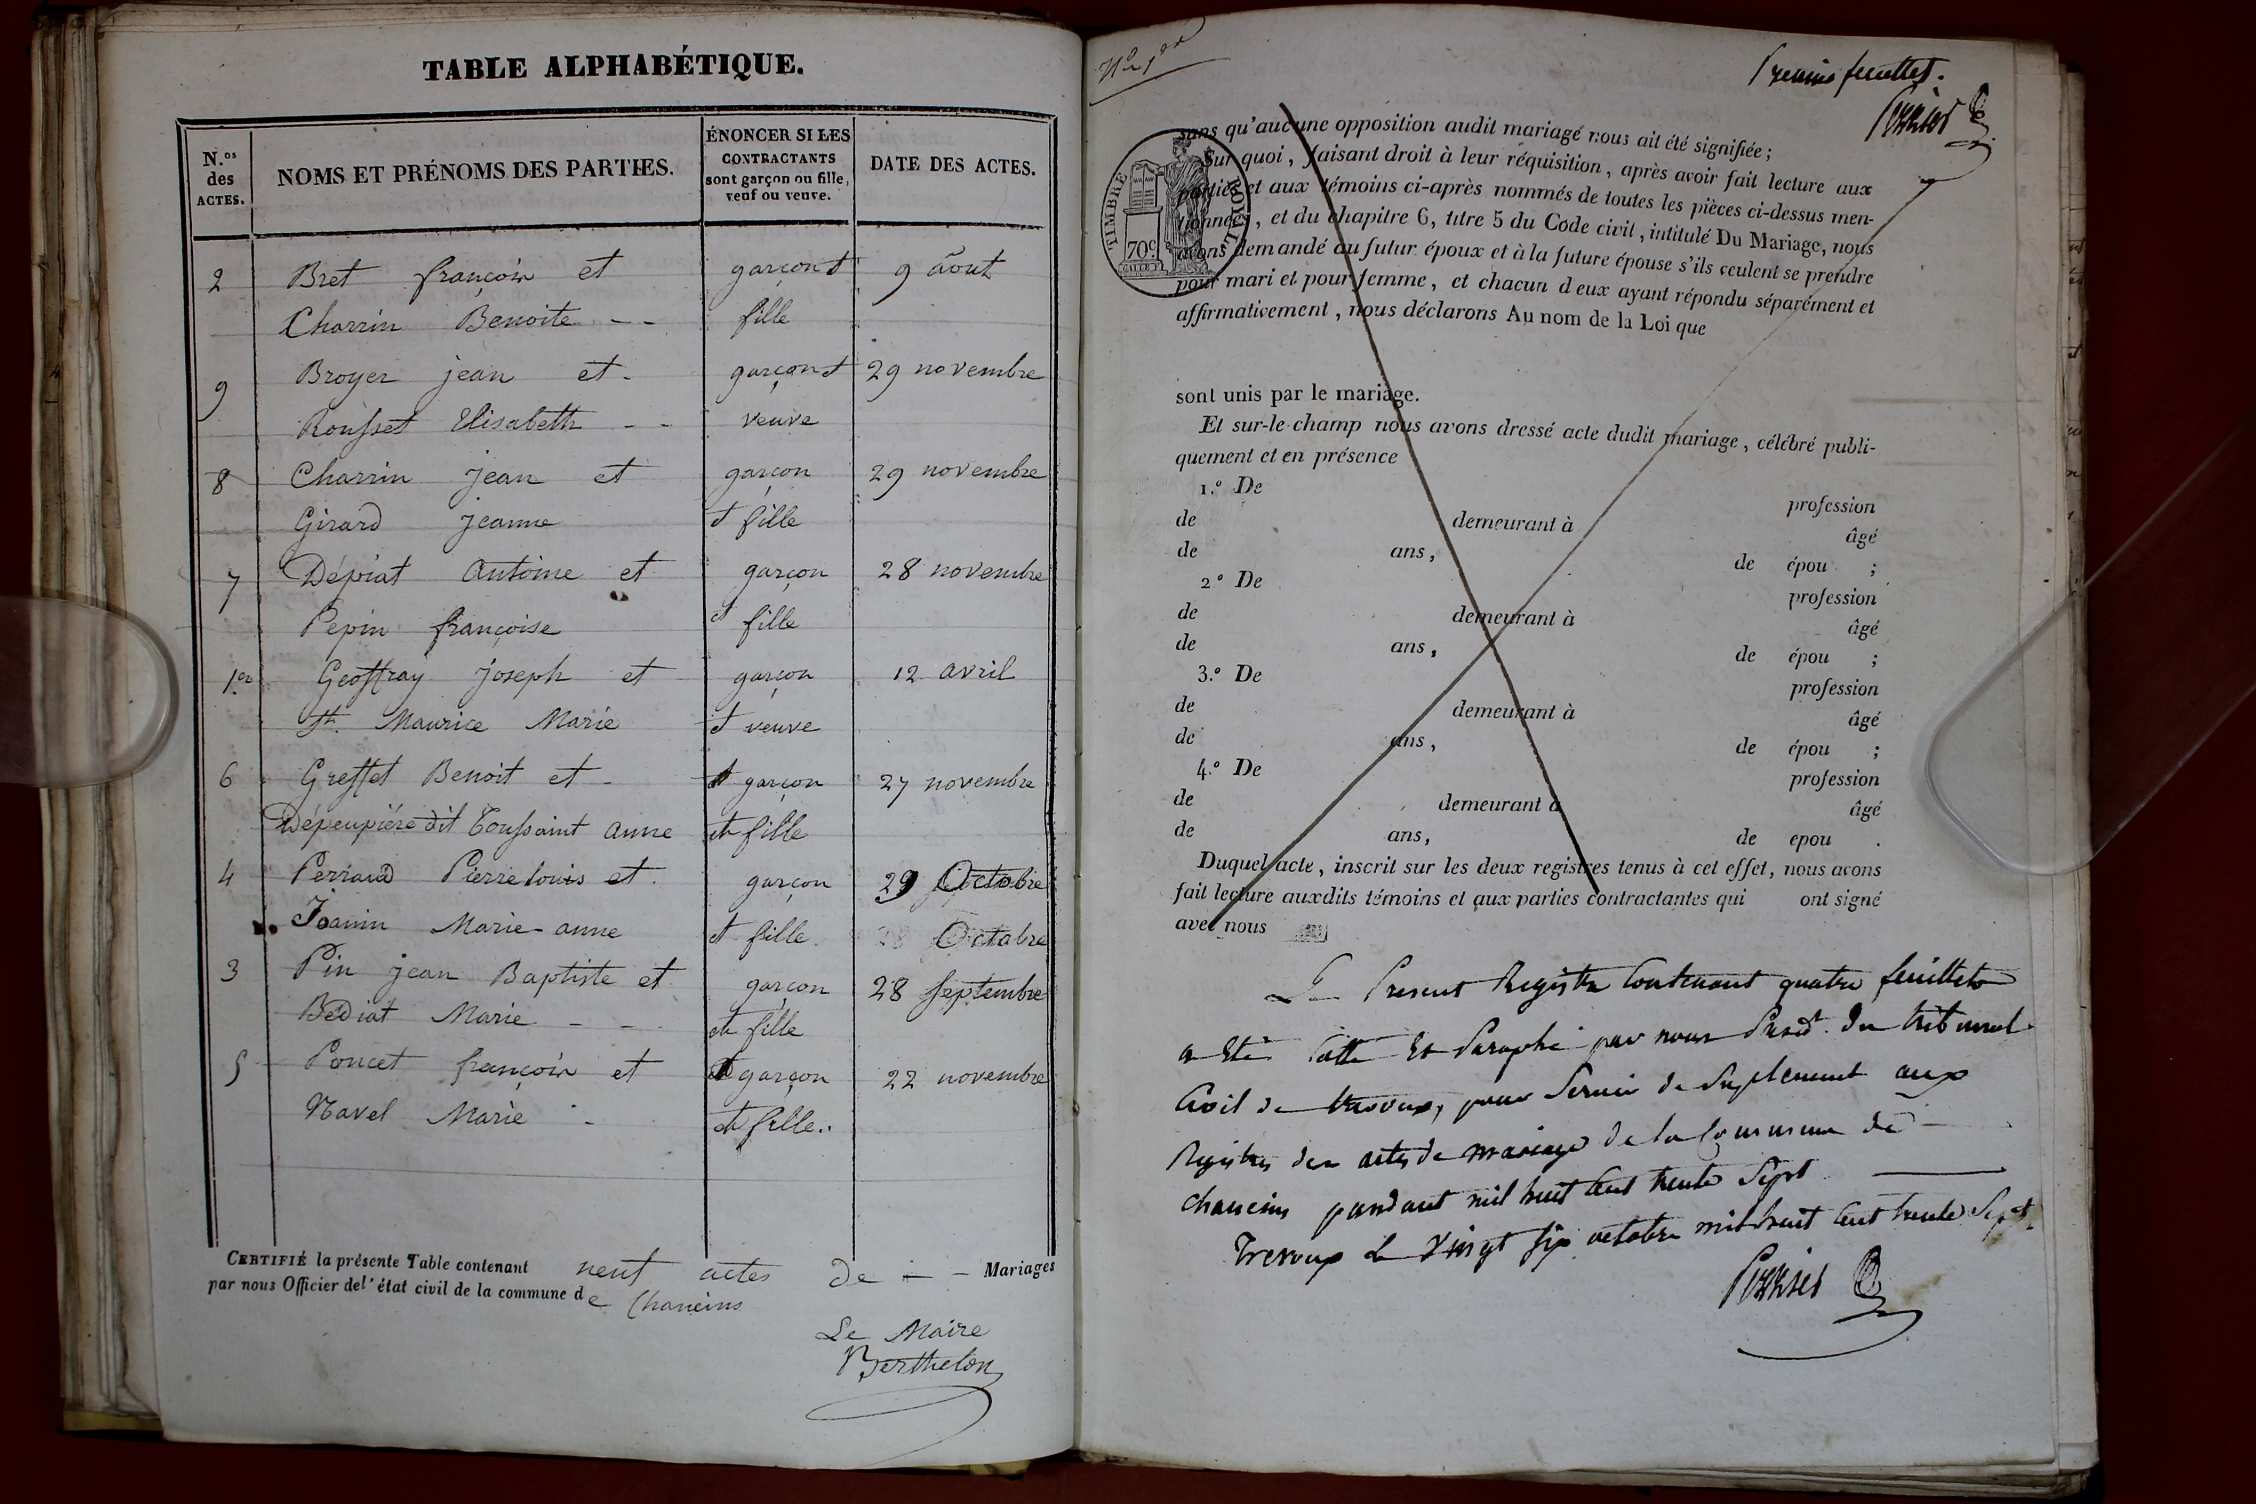 TABLE ALPHABÉTIQUE.
N.os des ACTES.
NOMS ET PRÉNOMS DES PARTIES.
ÉNONCER SI LES CONTRACTANTS sont garçon ou fille, veuf ou veuve.
DATE DES ACTES.
2 Bret françois et garçon et 9 août
Charrin Benoite -- fille
9 Broyer jean et - garçon et 29 novembre
Rousset Elisabeth -- veuve
8 Charrin jean et garçon 29 novembre
Girard jeanne et fille
7 Dépiat antoine et garçon 28 novembre
Pepin françoise et fille
1er Geoffray joseph et garçon 12 avril
St. Maurice Marie et veuve
6 Greffet Benoit et - garçon 27 novembre
Dépeupiére dit Toussaint anne et fille
4 Perraud Pierre louis et garçon 29 Octobre
Joanin Marie-anne et fille Octobre
3 Pin jean Baptiste et garçon 28 septembre
Bédiat Marie -- et fille
5 Poncet françois et garçon 22 novembre
Navel Marie - et fille..
CERTIFIÉ la présente Table contenant neuf actes de - - Mariages
par nous Officier de l'état civil de la commune de Chaneins
Le Maire
Berthelon
N° 1er
Premier feuillet.
TIMBRE ROYAL
70c
sans qu'aucune opposition audit mariage nous ait été signifiée;
Sur quoi, faisant droit à leur réquisition, après avoir fait lecture aux
parties et aux témoins ci-après nommés de toutes les pièces ci-dessus men-
tionnées, et du chapitre 6, titre 5 du Code civil, intitulé Du Mariage, nous
avons demandé au futur époux et à la future épouse s'ils veulent se prendre
pour mari et pour femme, et chacun d eux ayant répondu séparément et
affirmativement, nous déclarons Au nom de la Loi que
sont unis par le mariage.
Et sur-le-champ nous avons dressé acte dudit mariage, célébré publi-
quement et en présence
1.° De profession
de demeurant à âgé
de ans, de épou ;
2° De profession
de demeurant à âgé
de ans, de épou ;
3.° De profession
de demeurant à âgé
de ans, de épou ;
4.° De profession
de demeurant à âgé
de ans, de epou .
Duquel acte, inscrit sur les deux registres tenus à cet effet, nous avons
fait lecture auxdits témoins et aux parties contractantes qui ont signé
avec nous
Le Present Registre Contenant quatre feuillets
a Eté Cotté Et Paraphé par nous Presidt. du tribunal
Civil de trevoux, pour Servir de Suplement aux
Registres des actes de mariage de la Commune de -
chaneins pendant mil huit Cent trente Sept
Trevoux Le Vingt Six octobre mil huit Cent trente Sept